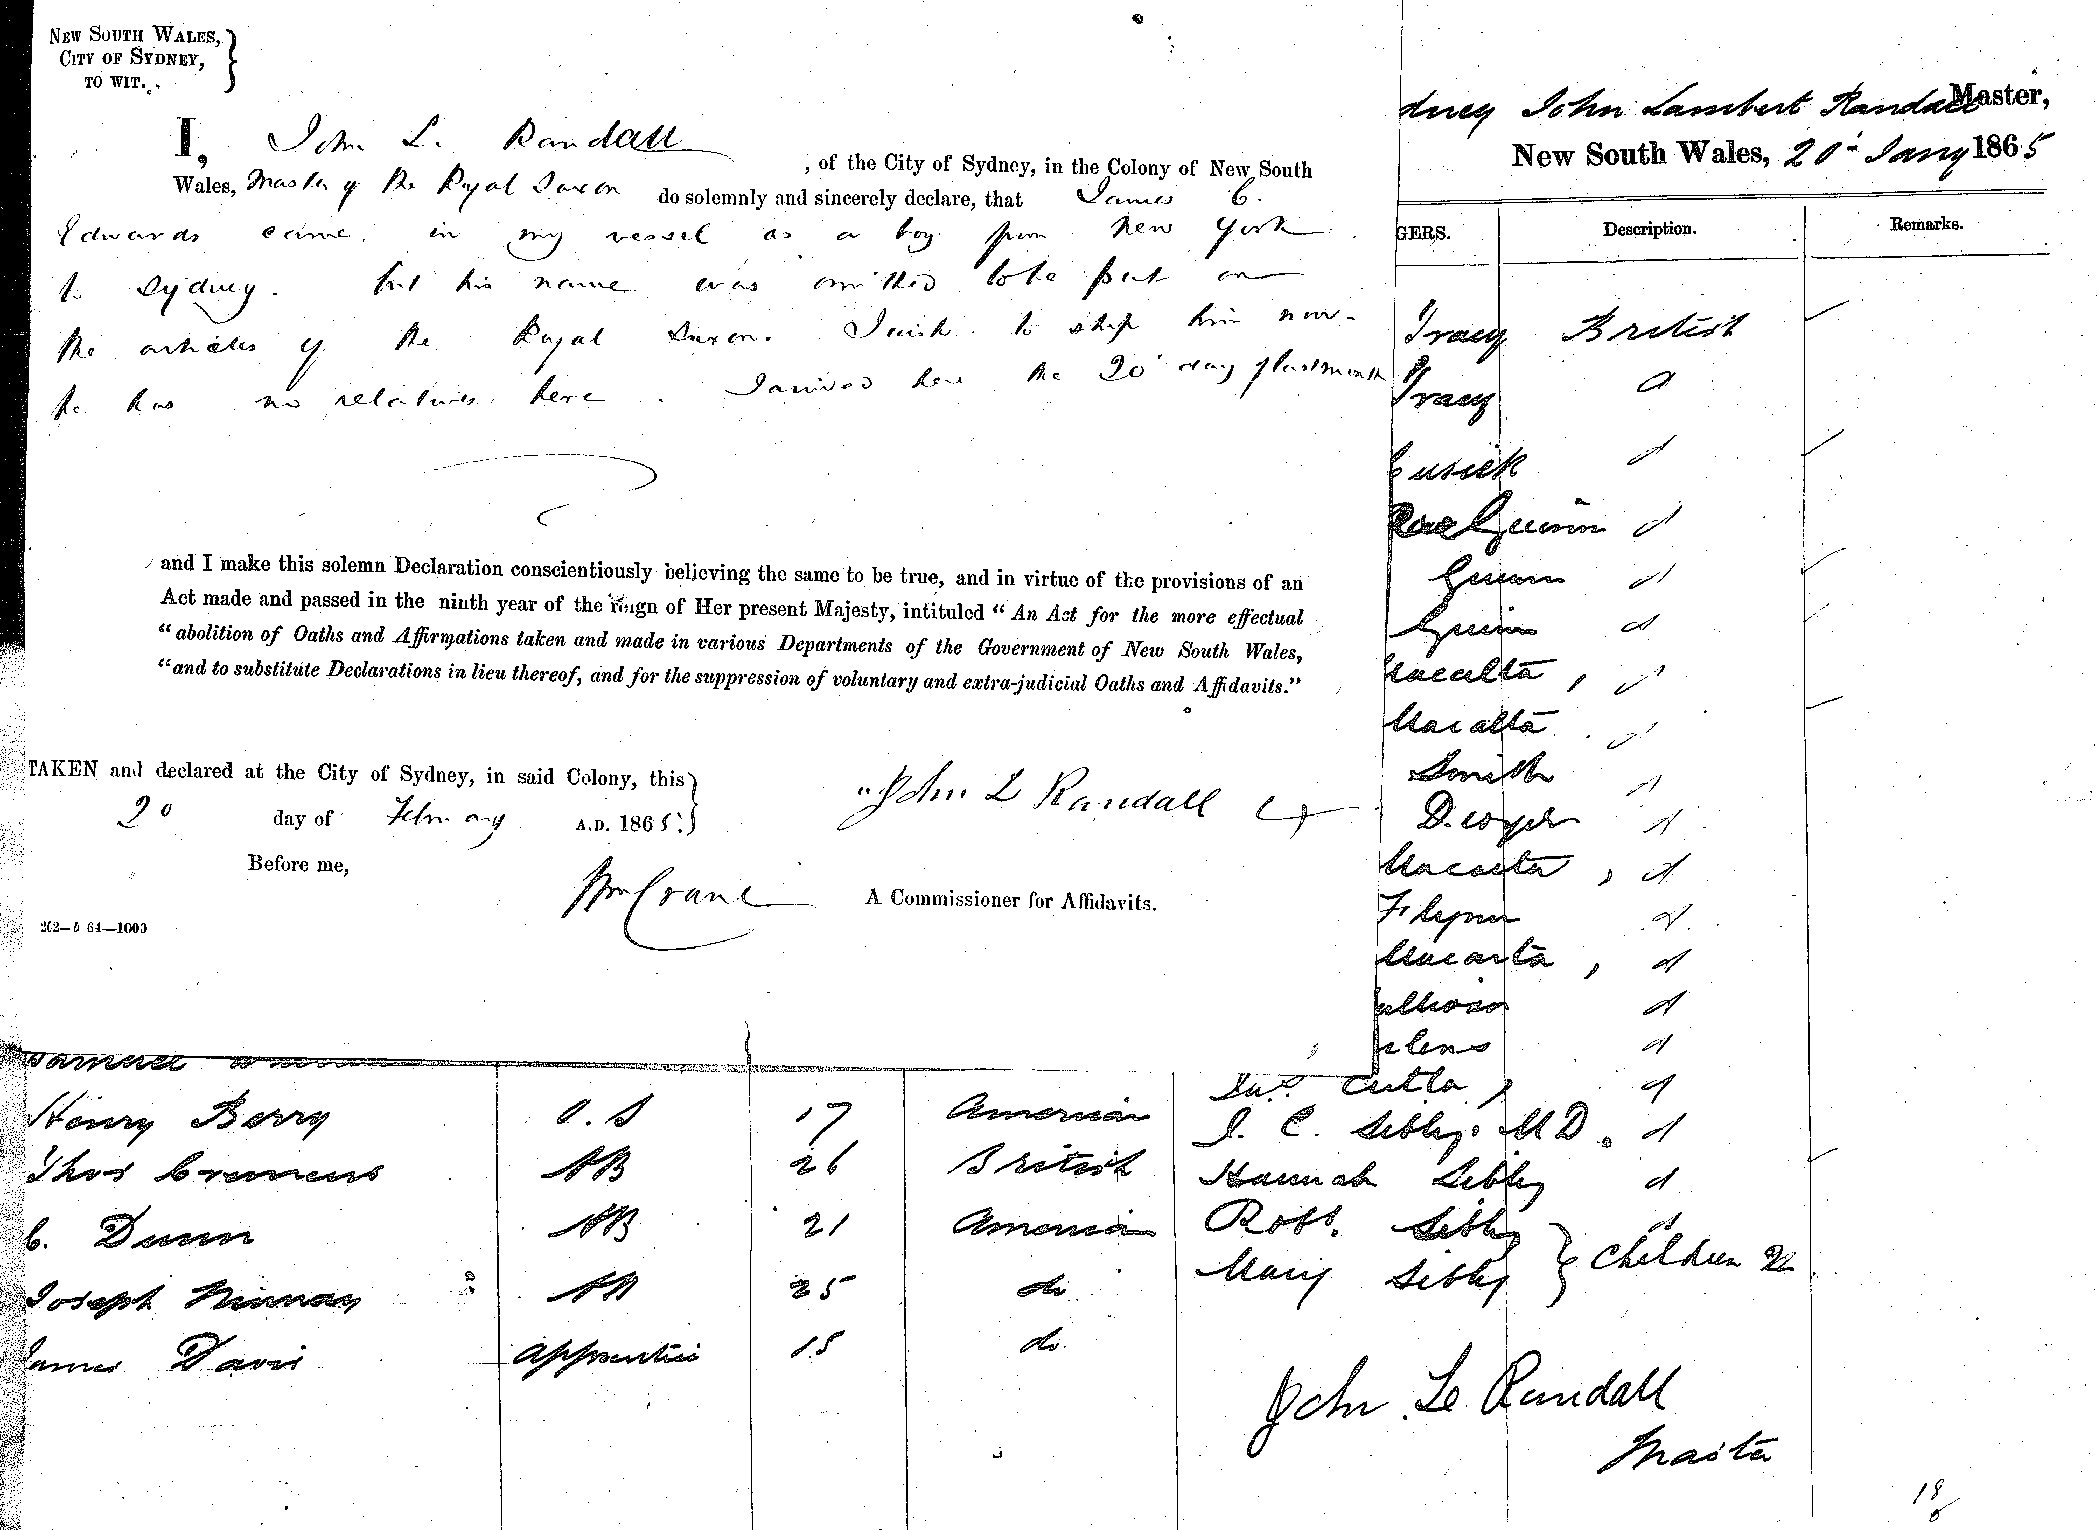 NEW SOUTH WALES,
CITY OF SYDNEY,
TO WIT.
I, John L. Randall, of the City of Sydney, in the Colony of New South
Wales, Master of the Royal Saxon do solemnly and sincerely declare, that James C.
Edwards came in my vessel as a boy from New York
to Sydney. but his name was omitted to be put on
the articles of the Royal Saxon. I wish to ship him now.
he has no relatives here. I arrived here the 20 day of last month
and I make this solemn Declaration conscientiously believing the same to be true, and in virtue of the provisions of an
Act made and passed in the ninth year of the reign of Her present Majesty, intituled "An Act for the more effectual
"abolition of Oaths and Affirmations taken and made in various Departments of the Government of New South Wales,
"and to substitute Declarations in lieu thereof, and for the suppression of voluntary and extra-judicial Oaths and Affidavits."
TAKEN and declared at the City of Sydney, in said Colony, this
20 day of February A.D. 1865.
John L Randall
Before me,
Wm Crane A Commissioner for Affidavits.
202—5 64—1000
Samuel
Henry Berry O.S 17 American
Thos Cremens AB 26 British
C. Dunn AB 21 American
Joseph AB 25 do
James Davis apprentice 15 do.
dney John Lambert Randall Master,
New South Wales, 20 Jany 1865
GERS. Description. Remarks.
Tracy British
Tracy d
Cusick d
Rose Guinn d
Guinn d
Guinn d
d
d
Smith d
D. d
d
d
d
d
d
d
J. C. Sibly. M D. d
Hannah Sibly d
Robt. Sibly d
Mary Sibly
Children 2
John L Randall
Master
18